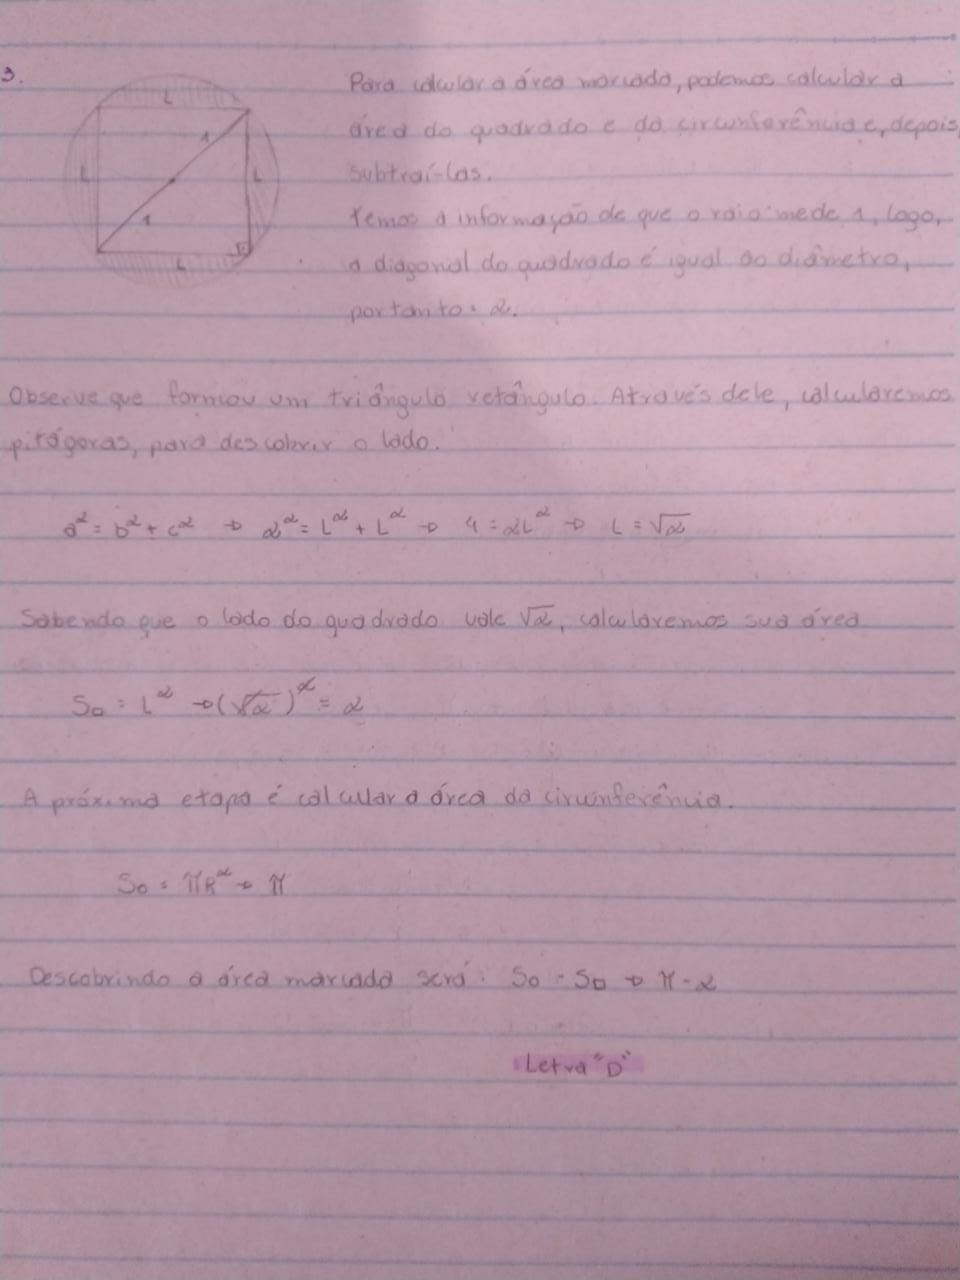 3.
L
1
L
L
1
L
Para calcular a área marcada, podemos calcular a
área do quadrado e da circunferência e, depois,
subtraí-las.
Temos a informação de que o raio mede 1, logo,
a diagonal do quadrado é igual ao diâmetro,
portanto: 2.
Observe que formou um triângulo retângulo. Através dele, calcularemos
pitágoras, para descobrir o lado.
a² = b² + c² → 2² = L² + L² → 4 = 2L² → L = √2
Sabendo que o lado do quadrado vale √2, calcularemos sua área
S□ = L² → (√2)² = 2
A próxima etapa é calcular a área da cirunferência.
S○ = πR² → π
Descobrindo a área marcada será: S○ - S□ → π - 2
Letra "D"